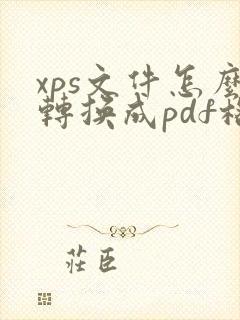 xps文件怎麼
轉換成pdf格
莊臣